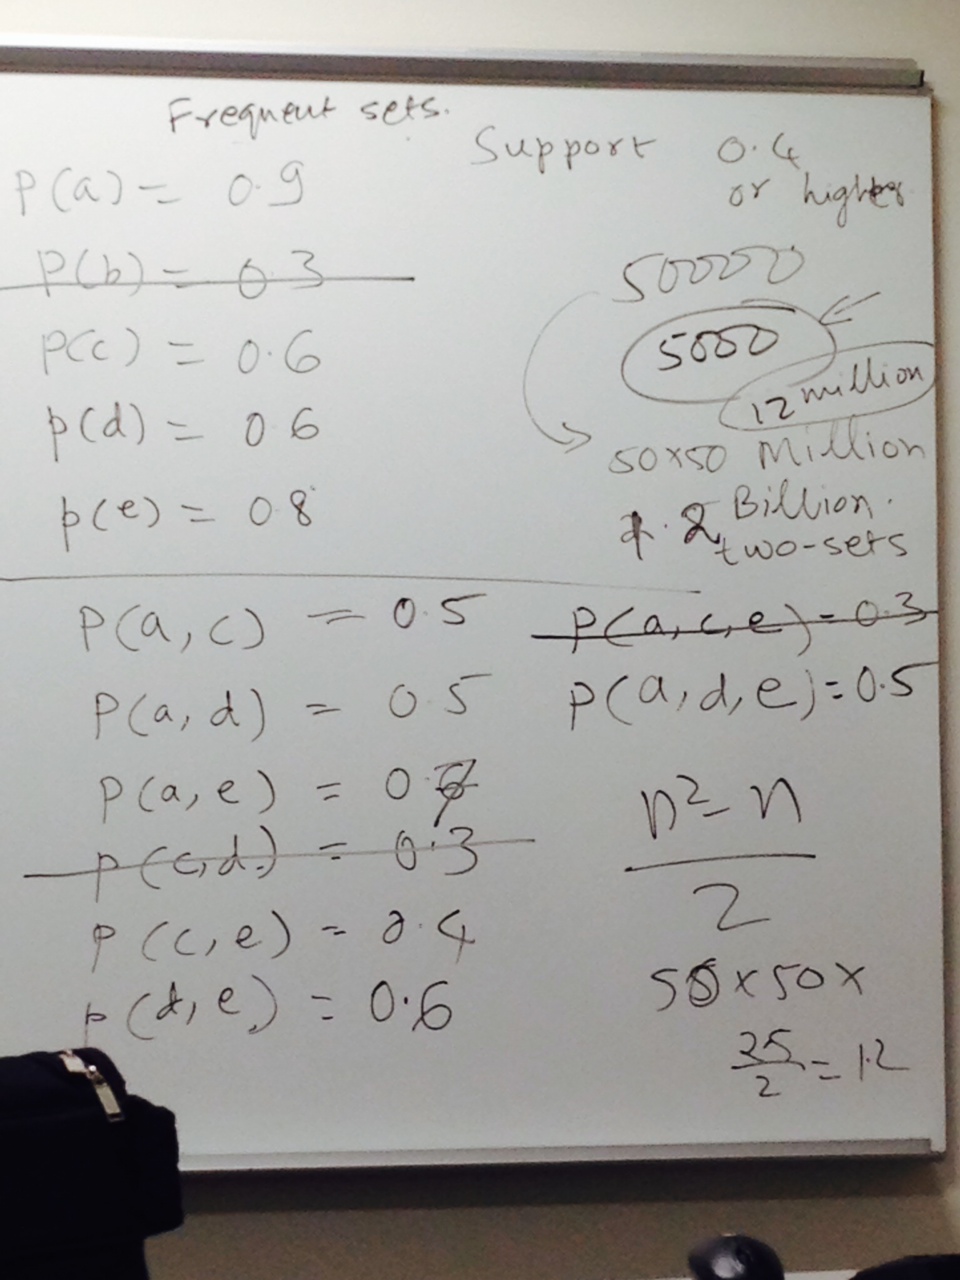 Frequent sets.
Support 0.4
or higher
P(a) = 0.9
P(b) = 0.3
P(c) = 0.6
p(d) = 0.6
p(e) = 0.8
50000
5000
12 million
50x50 Million
1.2 Billion.
two-sets
P(a, c) = 0.5
P(a, d) = 0.5
P(a, e) = 0.7
p(c,d) = 0.3
p(c,e) = 0.4
p(d,e) = 0.6
P(a,c,e) = 0.3
p(a,d,e) = 0.5
n² - n
2
50 x 50 x
25
2
= 1.2